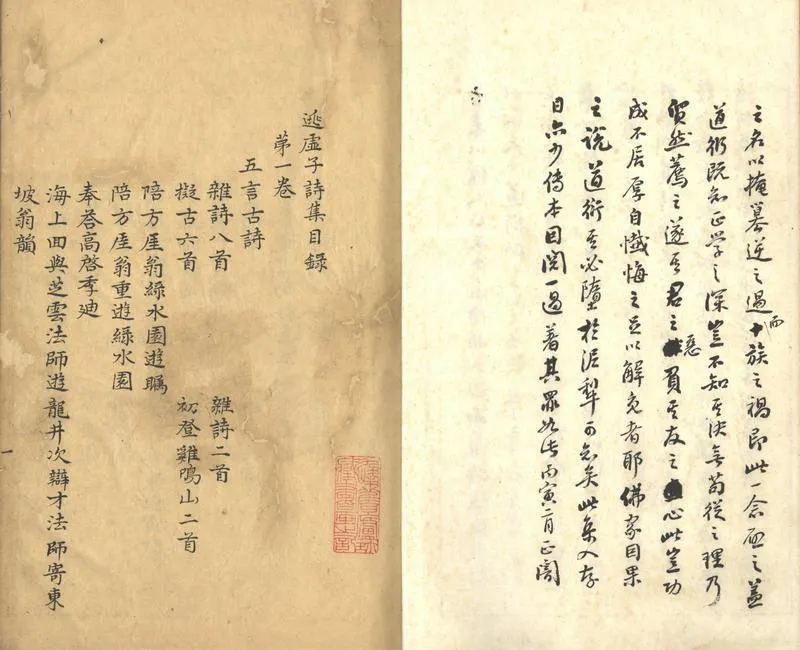 之名以掩篡逆之過而十族之禍即此一念之蓋
道衍既知正學之深豈不知其決無苟從之理乃
貿然薦之遂其君之惡負其友之心此豈功
成不居厚自懺悔之足以解免者耶佛家因果
之說道衍其必墮於泥犁可知矣此集入存
目亦少傳本因閱一過著其罪如此丙寅二月正闇
逃虛子詩集目錄
第一卷
五言古詩
雜詩八首 雜詩二首
擬古六首 初登雞鳴山二首
陪方厓翁綠水園遊矚
陪方厓翁重遊綠水園
奉荅高啓季廸
海上回與芝雲法師遊龍井次辯才法師寄東
坡翁韻
一